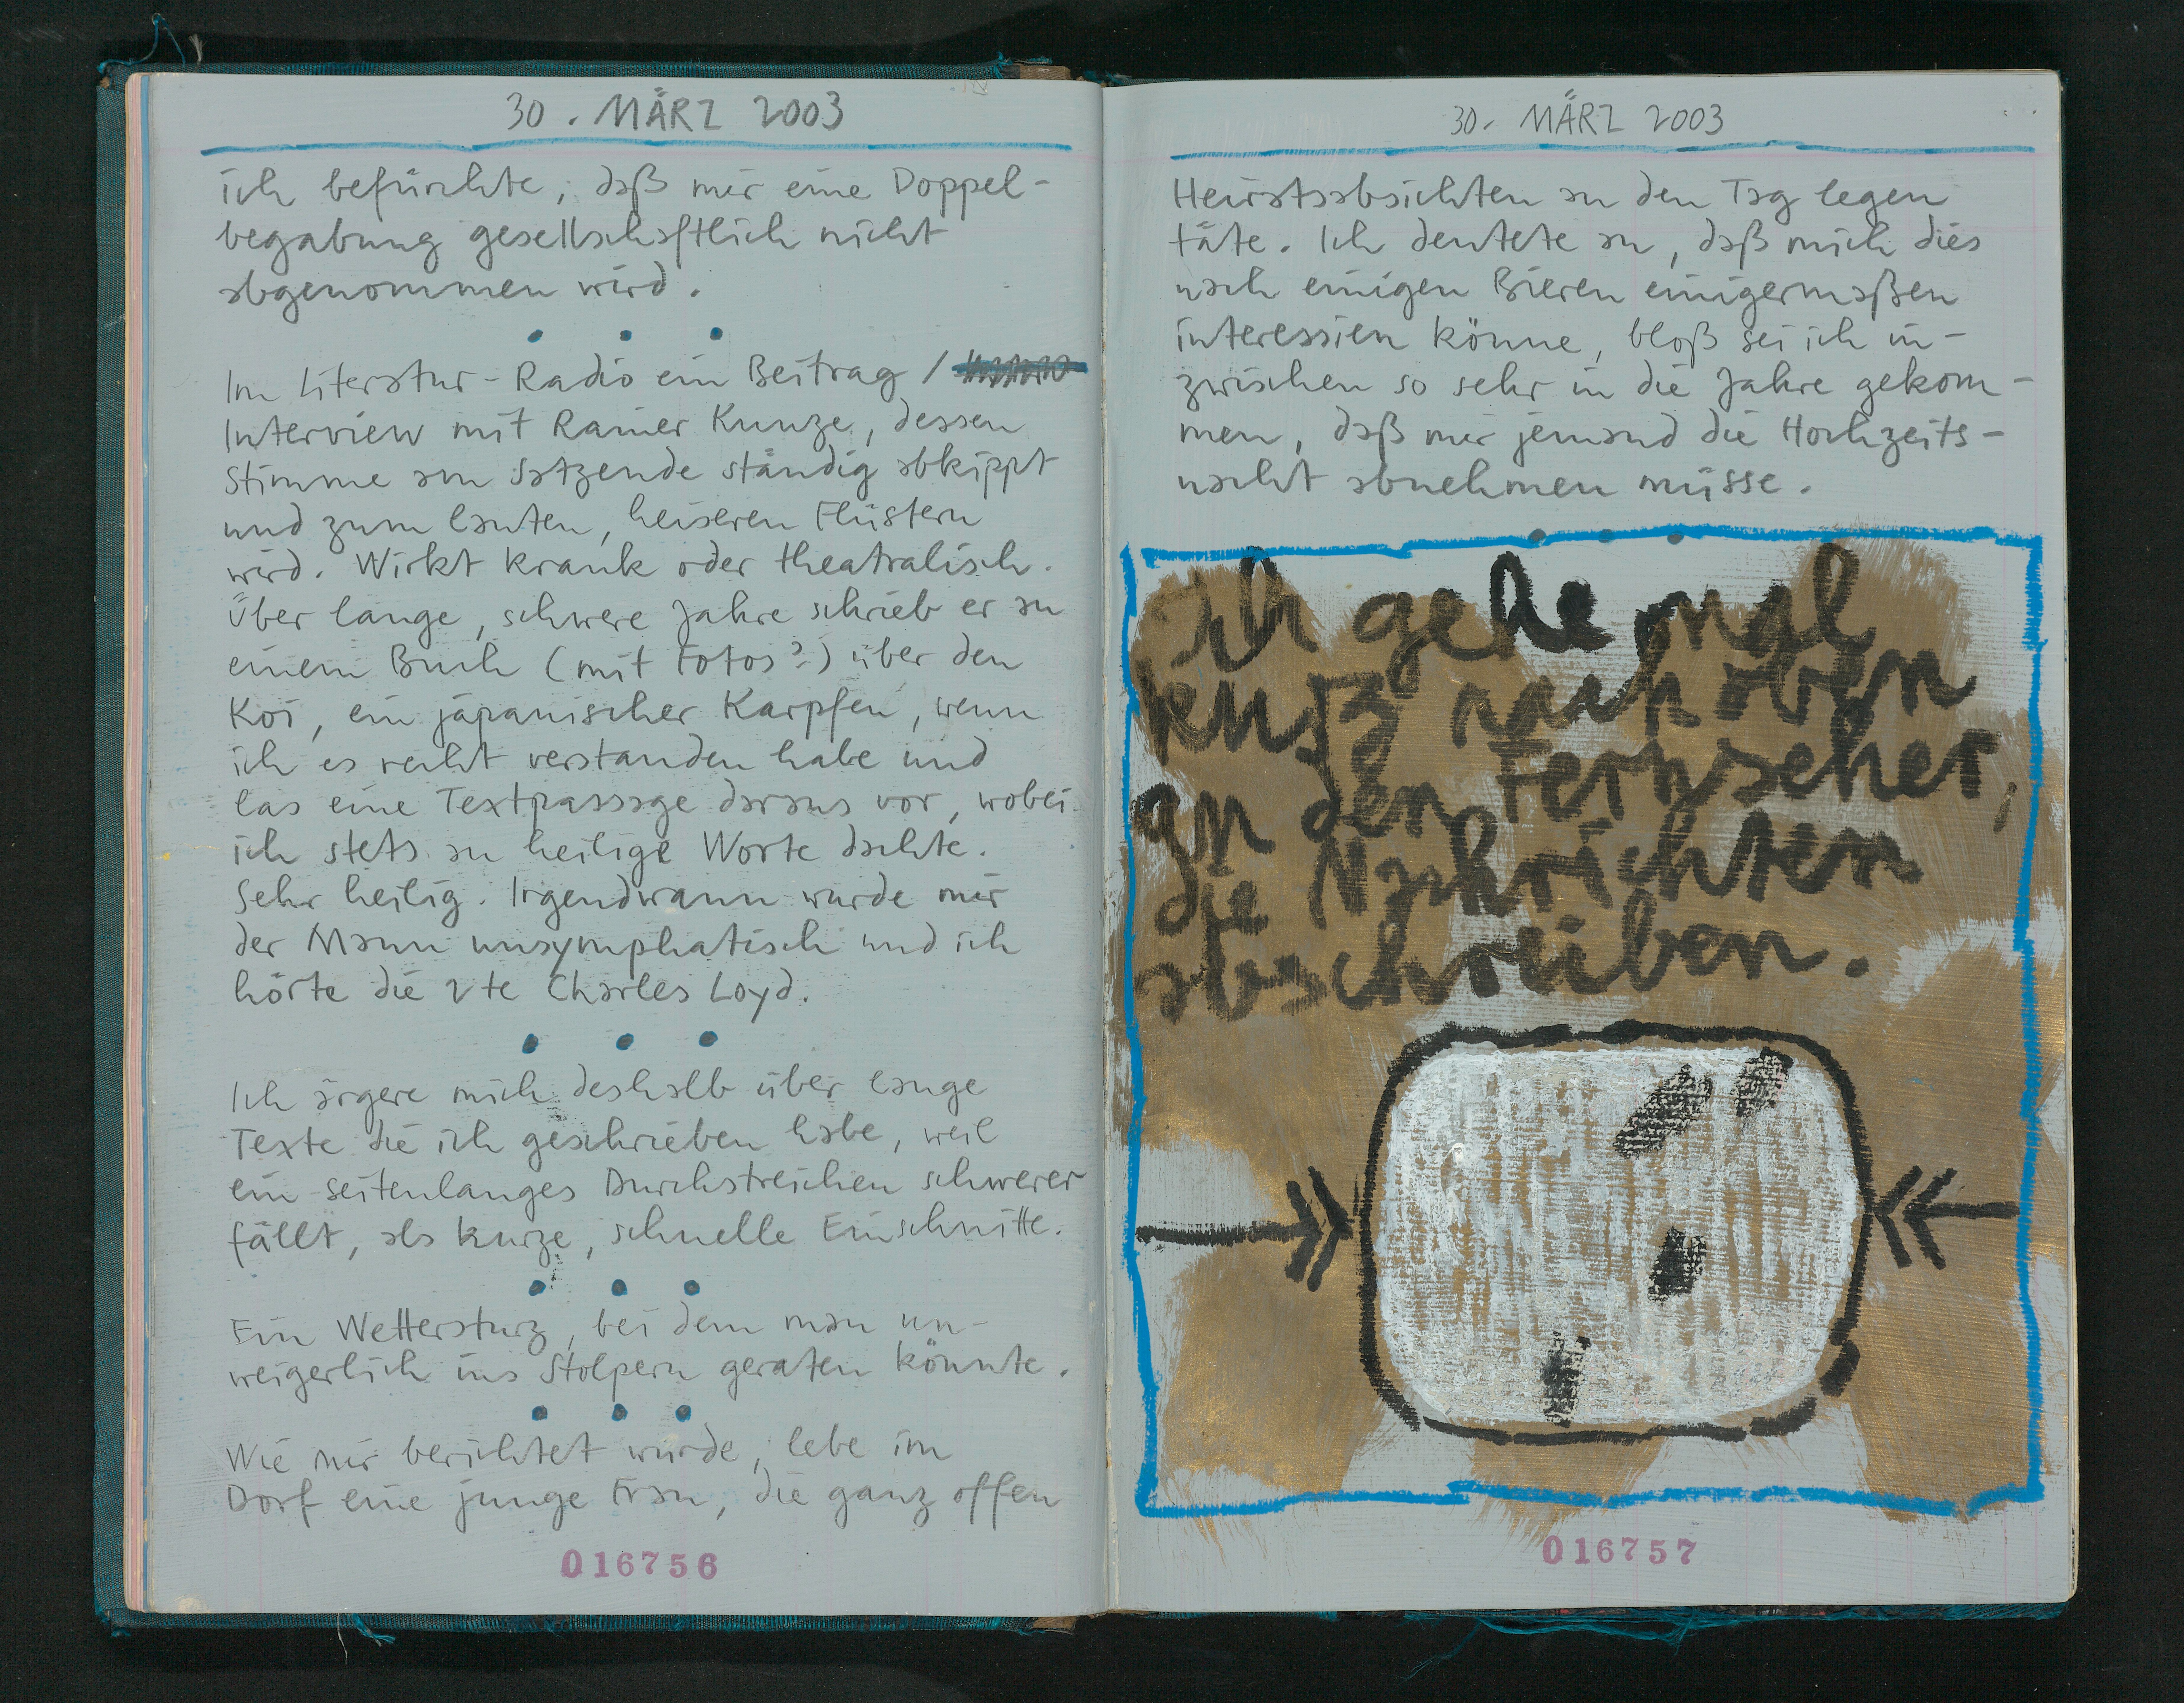 30. MÄRZ 2003
ich befürchte, daß mir eine Doppel-
begabung gesellschaftlich nicht
abgenommen wird.
Im Literatur-Radio ein Beitrag /
Interview mit Rainer Kunze, dessen
Stimme am Satzende ständig abkippt
und zum lauten, heiseren Flüstern
wird. Wirkt krank oder theatralisch.
Über lange, schwere Jahre schrieb er an
einem Buch (mit Fotos?) über den
Koi, ein japanischer Karpfen, wenn
ich es recht verstanden habe und
las eine Textpassage daraus vor, wobei
ich stets an heilige Worte dachte.
Sehr heilig. Irgendwann wurde mir
der Mann unsymphatisch und ich
hörte die 2te Charles Loyd.
Ich ärgere mich deshalb über lange
Texte die ich geschrieben habe, weil
ein seitenlanges Durchstreichen schwerer
fällt, als kurze, schnelle Einschnitte.
Ein Wettersturz, bei dem man un-
weigerlich ins Stolpern geraten könnte.
Wie mir berichtet wurde, lebe im
Dorf eine junge Frau, die ganz offen
016756
30. MÄRZ 2003
Heiratsabsichten an den Tag legen
täte. Ich deutete an, daß mich dies
nach einigen Bieren einigermaßen
interessien könne, bloß sei ich in-
zwischen so sehr in die Jahre gekom-
men, daß mir jemand die Hochzeits-
nacht abnehmen müsse.
ich gehe mal
kurz nach oben
an den Fernseher,
die Nachrichten
abschreiben.
016757